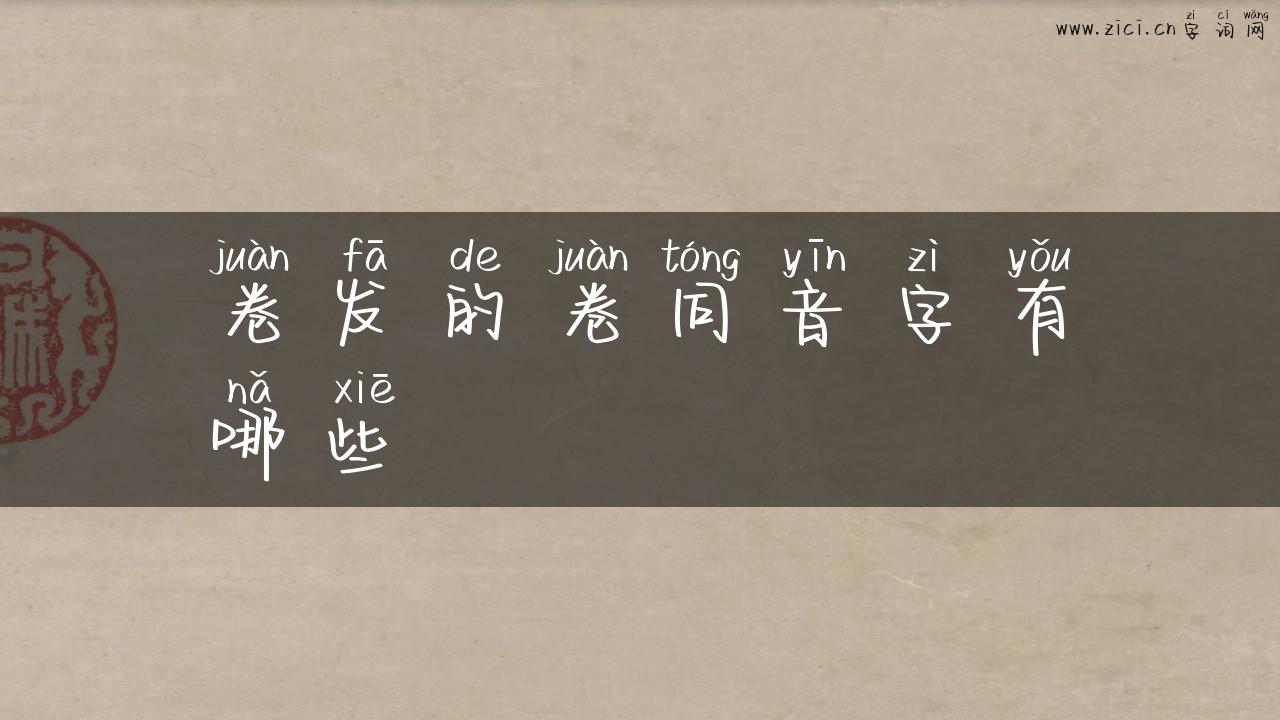 zì cí wǎng
www.zici.cn 字词网
juàn fā de juàn tóng yīn zì yǒu
卷发的卷同音字有
nǎ xiē
哪些